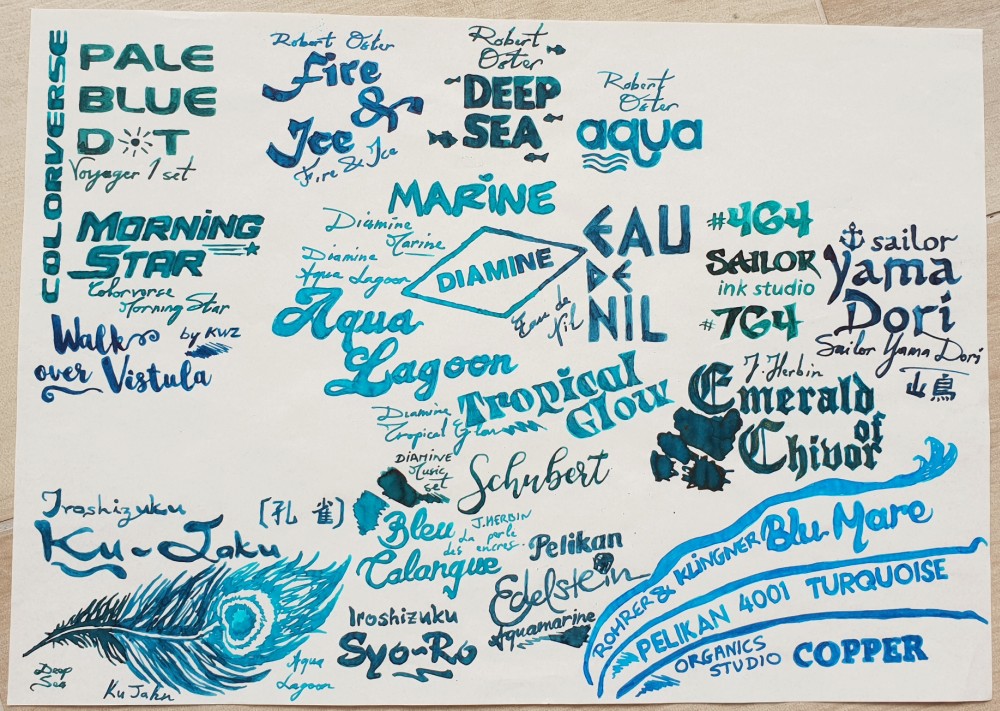 COLORVERSE
PALE
BLUE
DOT
Voyager 1 set
MORNING
STAR
Colorverse
Morning Star
Walk
over Vistula
by KWZ
Robert Oster
Fire
&
Ice
Fire & Ice
Robert
Oster
DEEP
SEA
Robert
Oster
aqua
MARINE
Diamine
Marine
DIAMINE
Diamine
Aqua Lagoon
Aqua
Lagoon
EAU
DE
NIL
Eau de
Nil
#464
SAILOR
ink studio
#764
sailor
Yama
Dori
Sailor Yama Dori
山鳥
Tropical
Glow
Diamine
Tropical Glow
J. Herbin
Emerald
of
Chivor
DIAMINE
Music
set
Schubert
Iroshizuku
[孔雀]
Ku-Jaku
Deep
Sea
Ku Jaku
Aqua
Lagoon
Bleu
Calanque
J. HERBIN
La perle
des encres
Iroshizuku
Syo-Ro
Pelikan
Edelstein
Aquamarine
ROHRER & KLINGNER Blu Mare
PELIKAN 4001 TURQUOISE
ORGANICS
STUDIO
COPPER